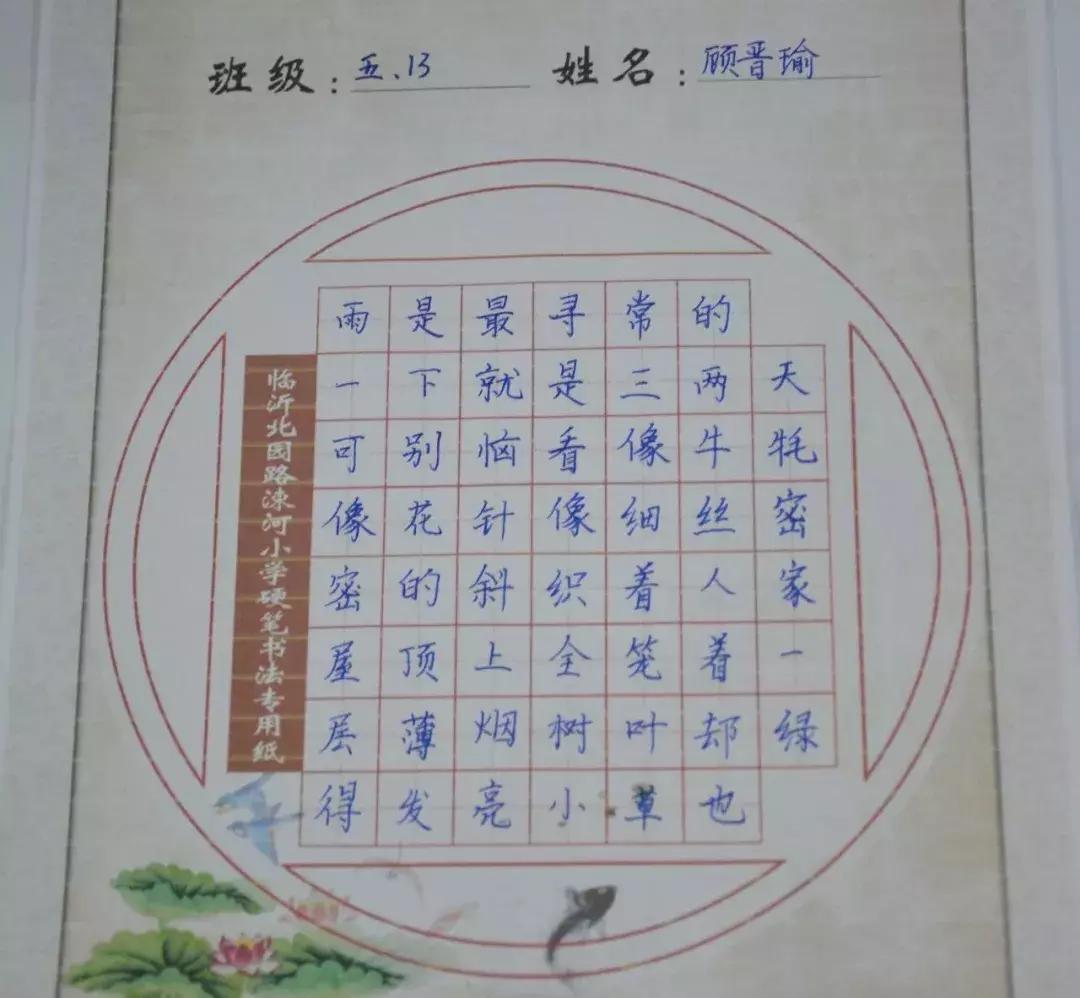 班级：五.13 姓名：顾晋瑜
雨是最寻常的
一下就是三两天
可别恼看像牛牦
像花针像细丝密
密的斜织着人家
屋顶上全笼着一
层薄烟树叶却绿
得发亮小草也
临沂北园路涑河小学硬笔书法专用纸